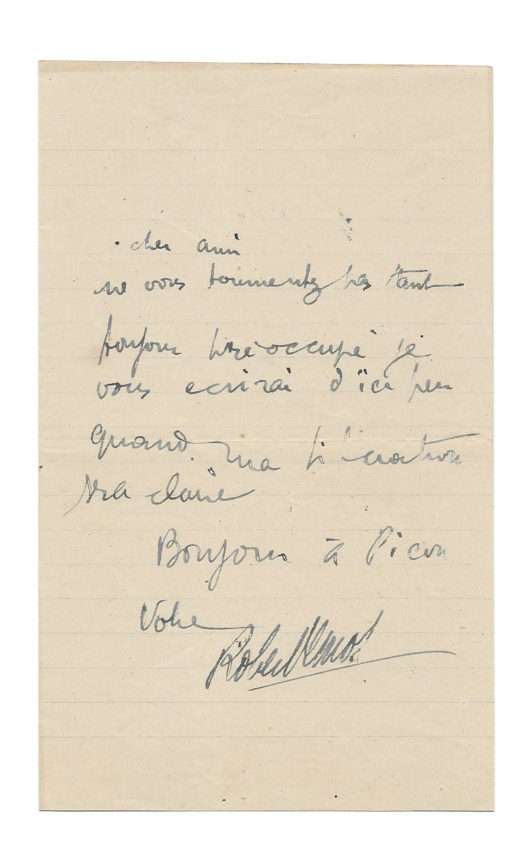 cher ami
ne vous tourmentez pas tant
toujours préoccupé je
vous ecrirai d'ici peu
quand ma situation
sera claire
Bonjour à Picon
Votre
Robert